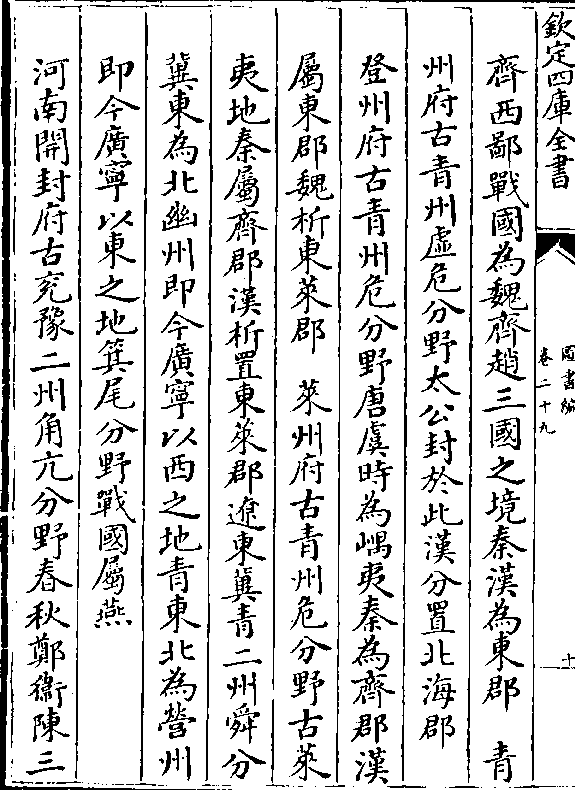 欽定四庫全書
圖書編
卷二十九
十
齊西鄙戰國為魏齊趙三國之境秦漢為東郡　青
州府古青州虛危分野太公封於此漢分置北海郡
登州府古青州危分野唐虞時為嵎夷秦為齊郡漢
屬東郡魏析東萊郡　萊州府古青州危分野古萊
夷地秦屬齊郡漢析置東萊郡遼東冀青二州舜分
冀東為北幽州即今廣寧以西之地青東北為營州
即今廣寧以東之地箕尾分野戰國屬燕
河南開封府古兗豫二州角亢分野春秋鄭衞陳三